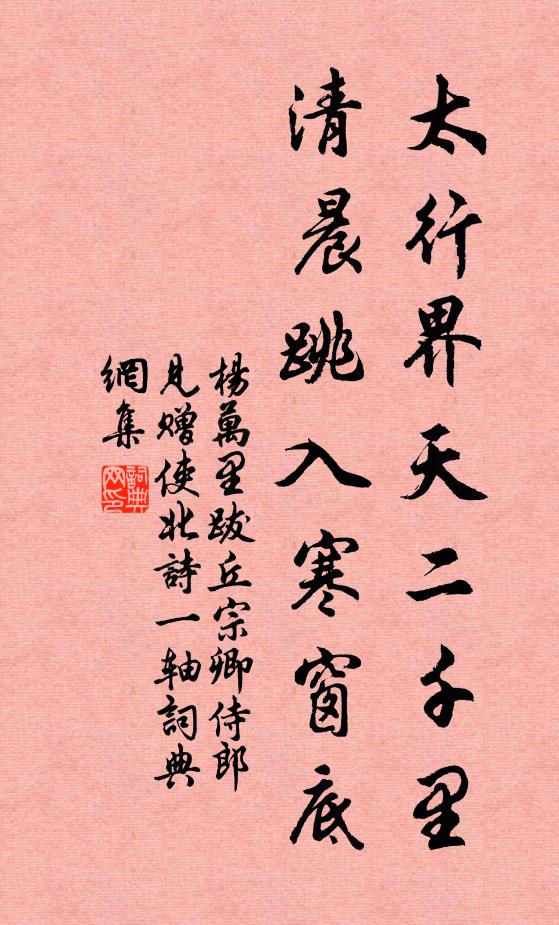 太行界天二千里
清晨跳入寒窗底
楊萬里跋丘宗卿侍郎
見贈使北詩一轴詞典
網集
詞典
网印